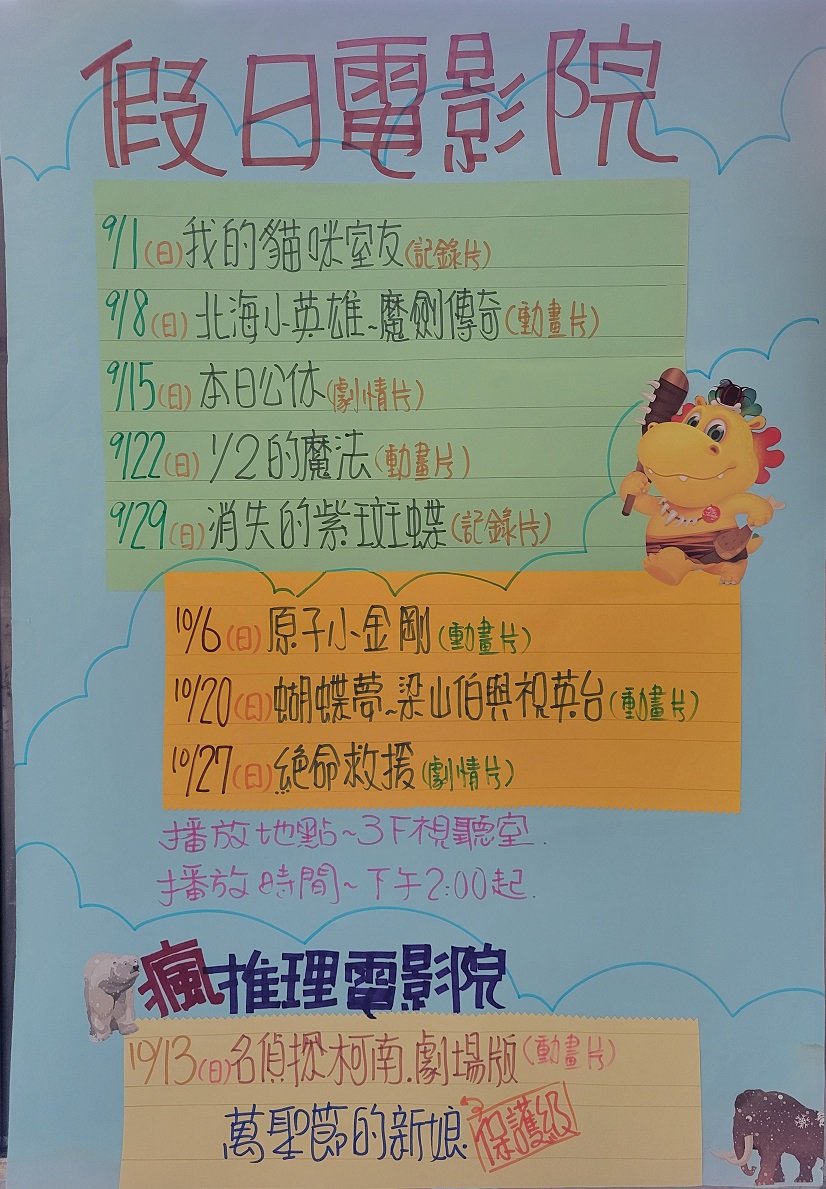 假日電影院
9/1(日)我的貓咪室友(記錄片)
9/8(日)北海小英雄~魔劍傳奇(動畫片)
9/15(日)本日公休(劇情片)
9/22(日)1/2的魔法(動畫片)
9/29(日)消失的紫斑蝶(記錄片)
10/6(日)原子小金剛(動畫片)
10/20(日)蝴蝶夢~梁山伯與祝英台(動畫片)
10/27(日)絕命救援(劇情片)
播放地點~3F視聽室.
播放時間~下午2:00起.
瘋推理電影院
10/13(日)名偵探柯南.劇場版(動畫片)
萬聖節的新娘
保護級